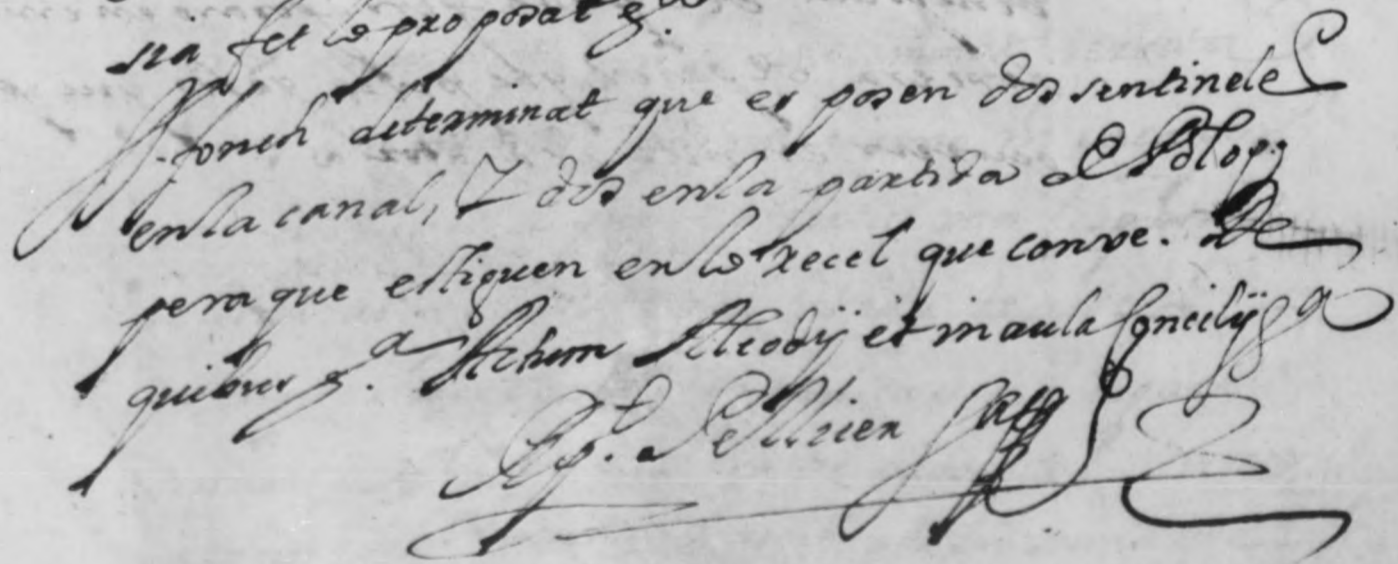 sia fet lo proposat &.
fonch determinat que es posen dos sentineles
en la canal, Y dos en la partida de Polop;
pera que estiguen en lo recel que conve. De
quibus &.a Actum Alcodij et in aula Concilij &a
Pellicer